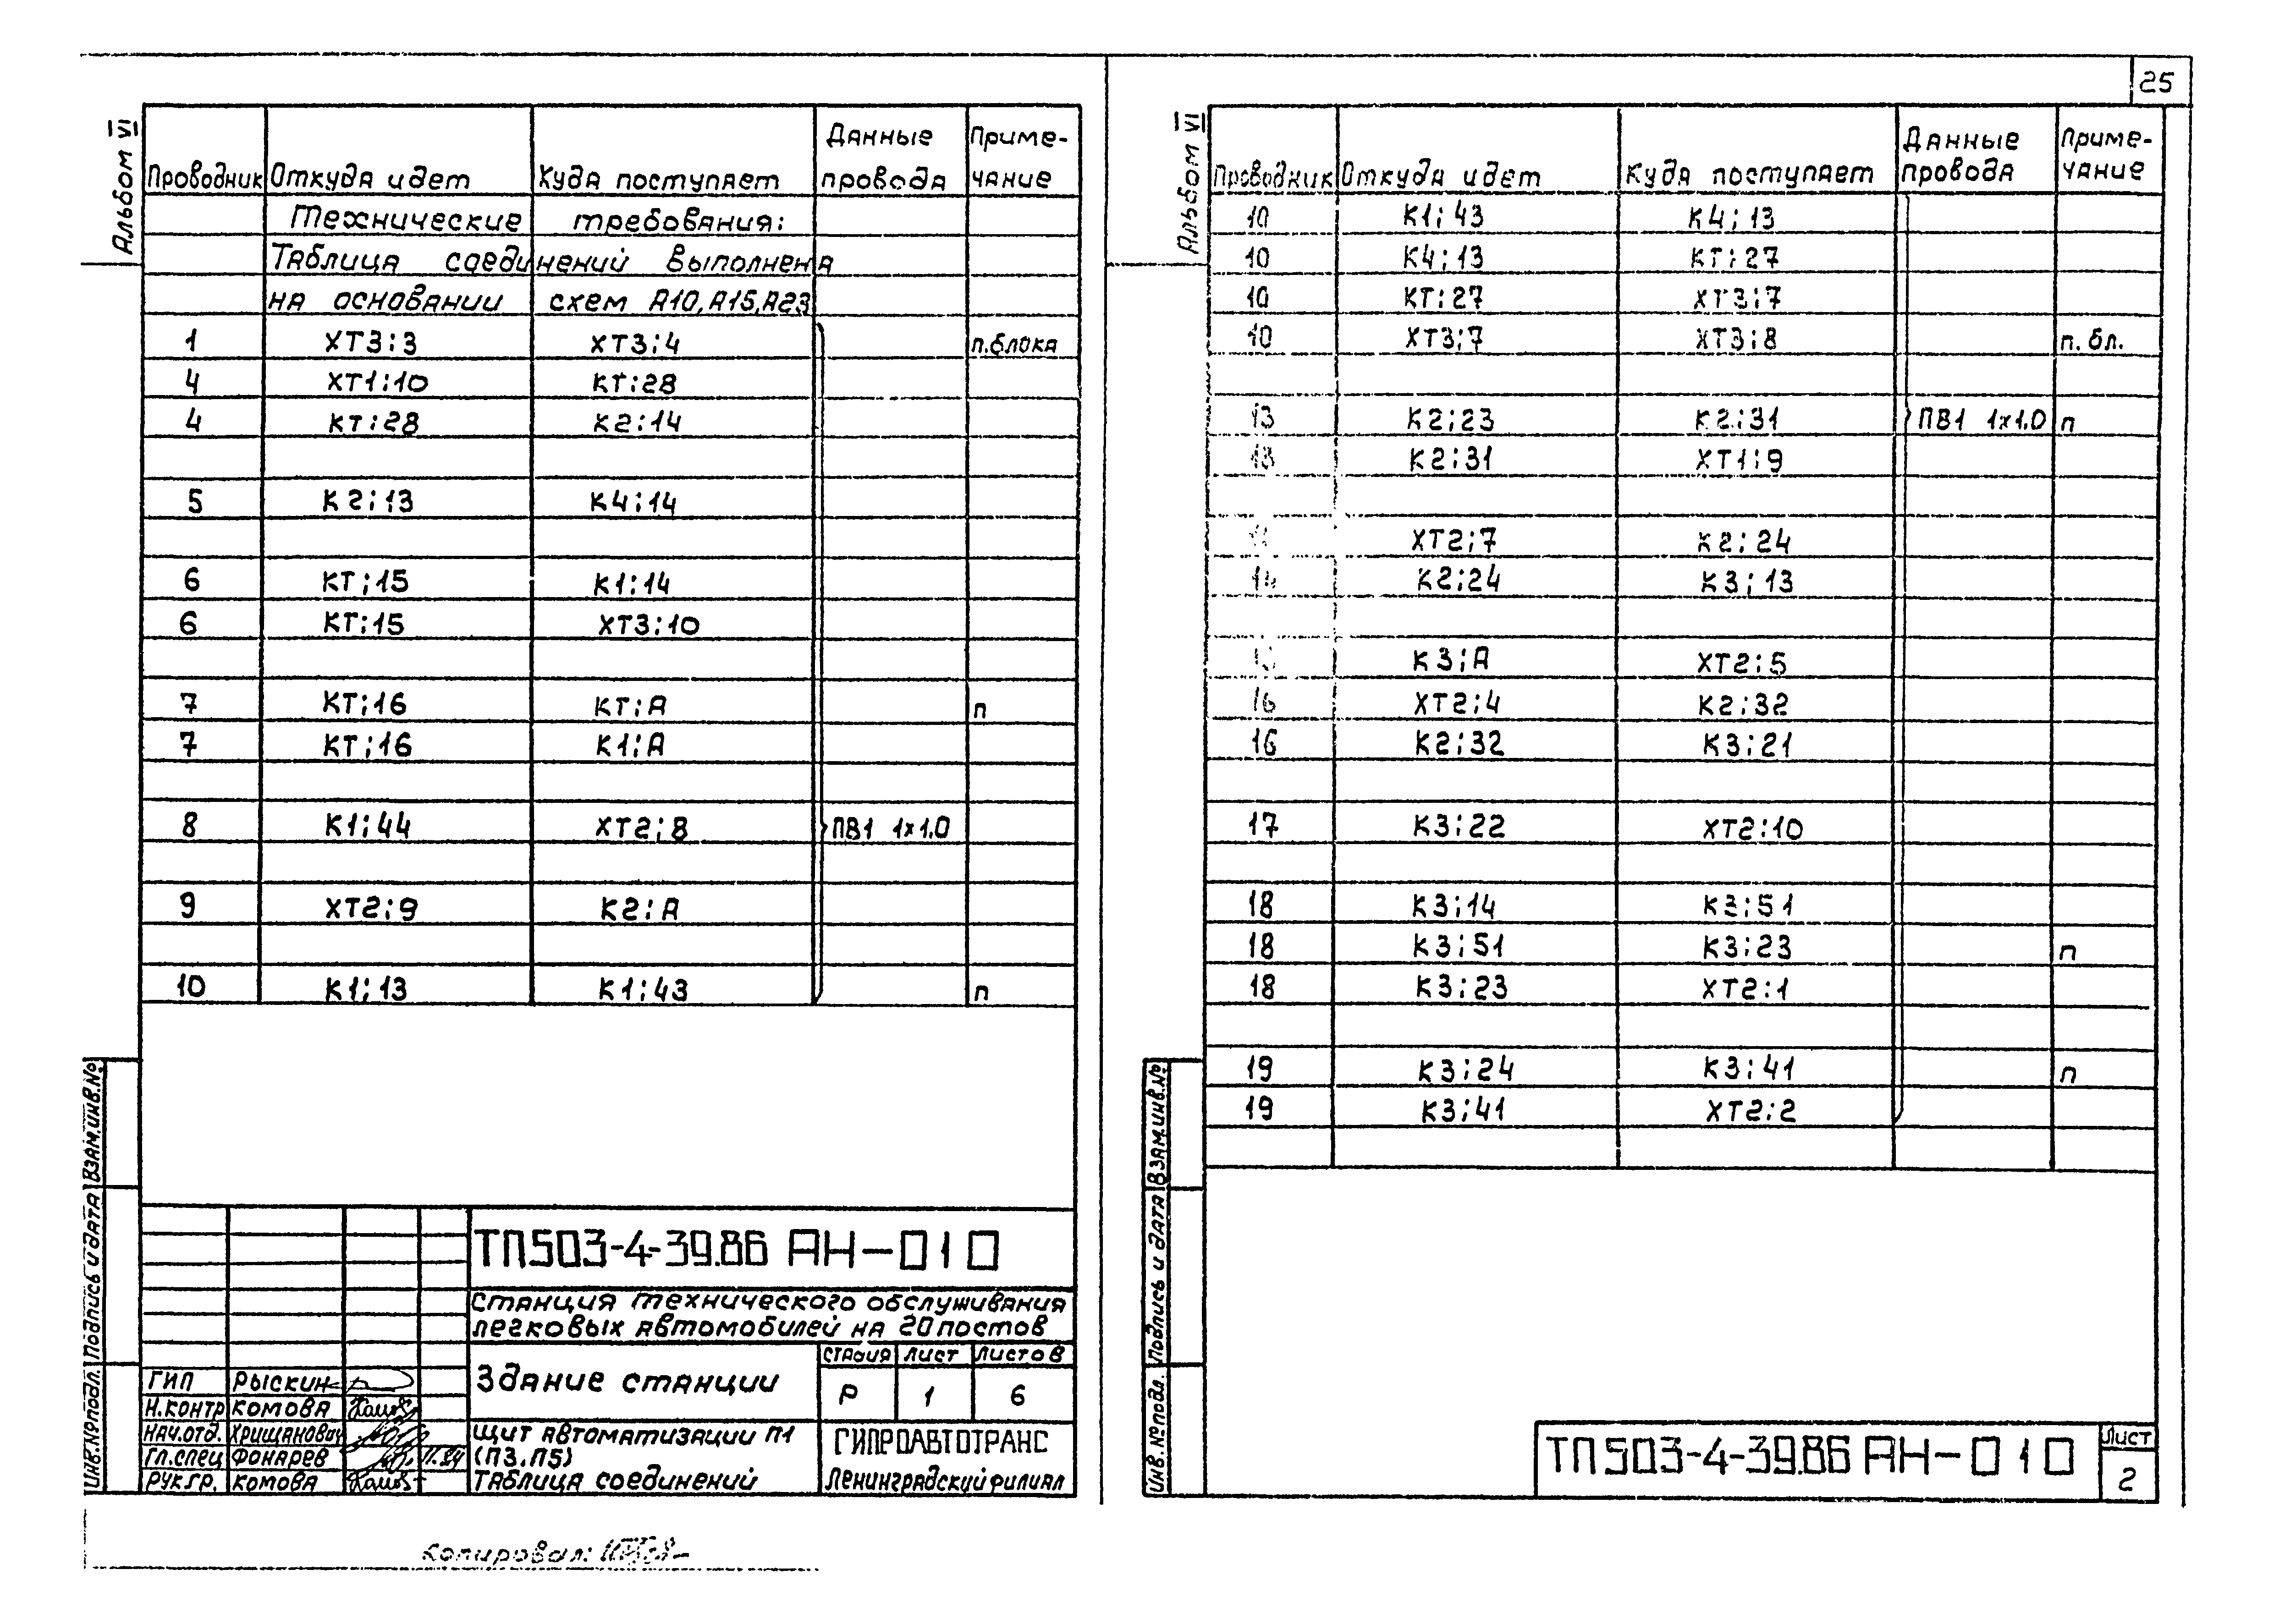 25
Альбом VI
Проводник Откуда идет Куда поступает Данные провода Приме-чание
Технические требования:
Таблица соединений выполнена
на основании схем А10, А15, А23
1 ХТ3:3 ХТ3:4 п.блока
4 ХТ1:10 КТ:28
4 КТ:28 К2:14
5 К2:13 К4:14
6 КТ:15 К1:14
6 КТ:15 ХТ3:10
7 КТ:16 КТ:А п
7 КТ:16 К1:А
8 К1:44 ХТ2:8 ПВ1 1х1.0
9 ХТ2:9 К2:А
10 К1:13 К1:43 п
Взам.инв.№
Подпись и дата
Инв.№подл.
ТП503-4-39.86 АН-010
Станция технического обслуживания
легковых автомобилей на 20 постов
Здание станции
Стадия Лист Листов
Р 1 6
ГИП Рыскин
Н.контр Комова
Нач.отд. Хрищанович
Гл.спец Фонарев
Рук.гр. Комова
Щит автоматизации П1
(П3, П5)
Таблица соединений
ГИПРОАВТОТРАНС
Ленинградский филиал
Копировал:
Альбом VI
Проводник Откуда идет Куда поступает Данные провода Приме-чание
10 К1:43 К4:13
10 К4:13 КТ:27
10 КТ:27 ХТ3:7
10 ХТ3:7 ХТ3:8 п.бл.
13 К2:23 К2:31 ПВ1 1х1.0 п
13 К2:31 ХТ1:9
ХТ2:7 К2:24
14 К2:24 К3:13
К3:А ХТ2:5
16 ХТ2:4 К2:32
16 К2:32 К3:21
17 К3:22 ХТ2:10
18 К3:14 К3:51
18 К3:51 К3:23 п
18 К3:23 ХТ2:1
19 К3:24 К3:41 п
19 К3:41 ХТ2:2
Взам.инв.№
Подпись и дата
Инв.№подл.
ТП503-4-39.86 АН-010
Лист
2